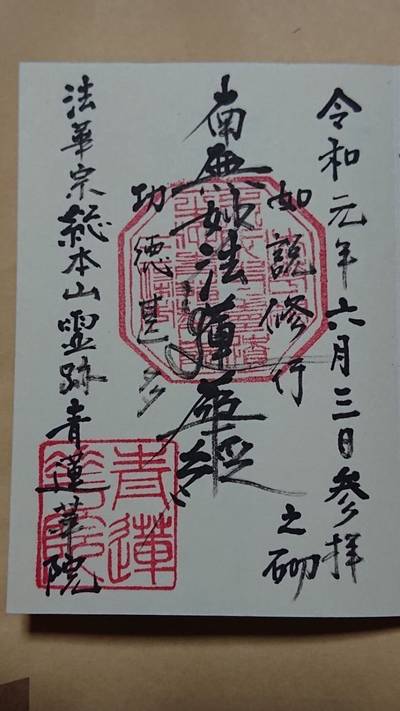 令和元年六月三日参拝
之砌
如説修行
南無妙法蓮華經
功徳甚多
法華宗総本山霊跡青蓮華院
青蓮
華院